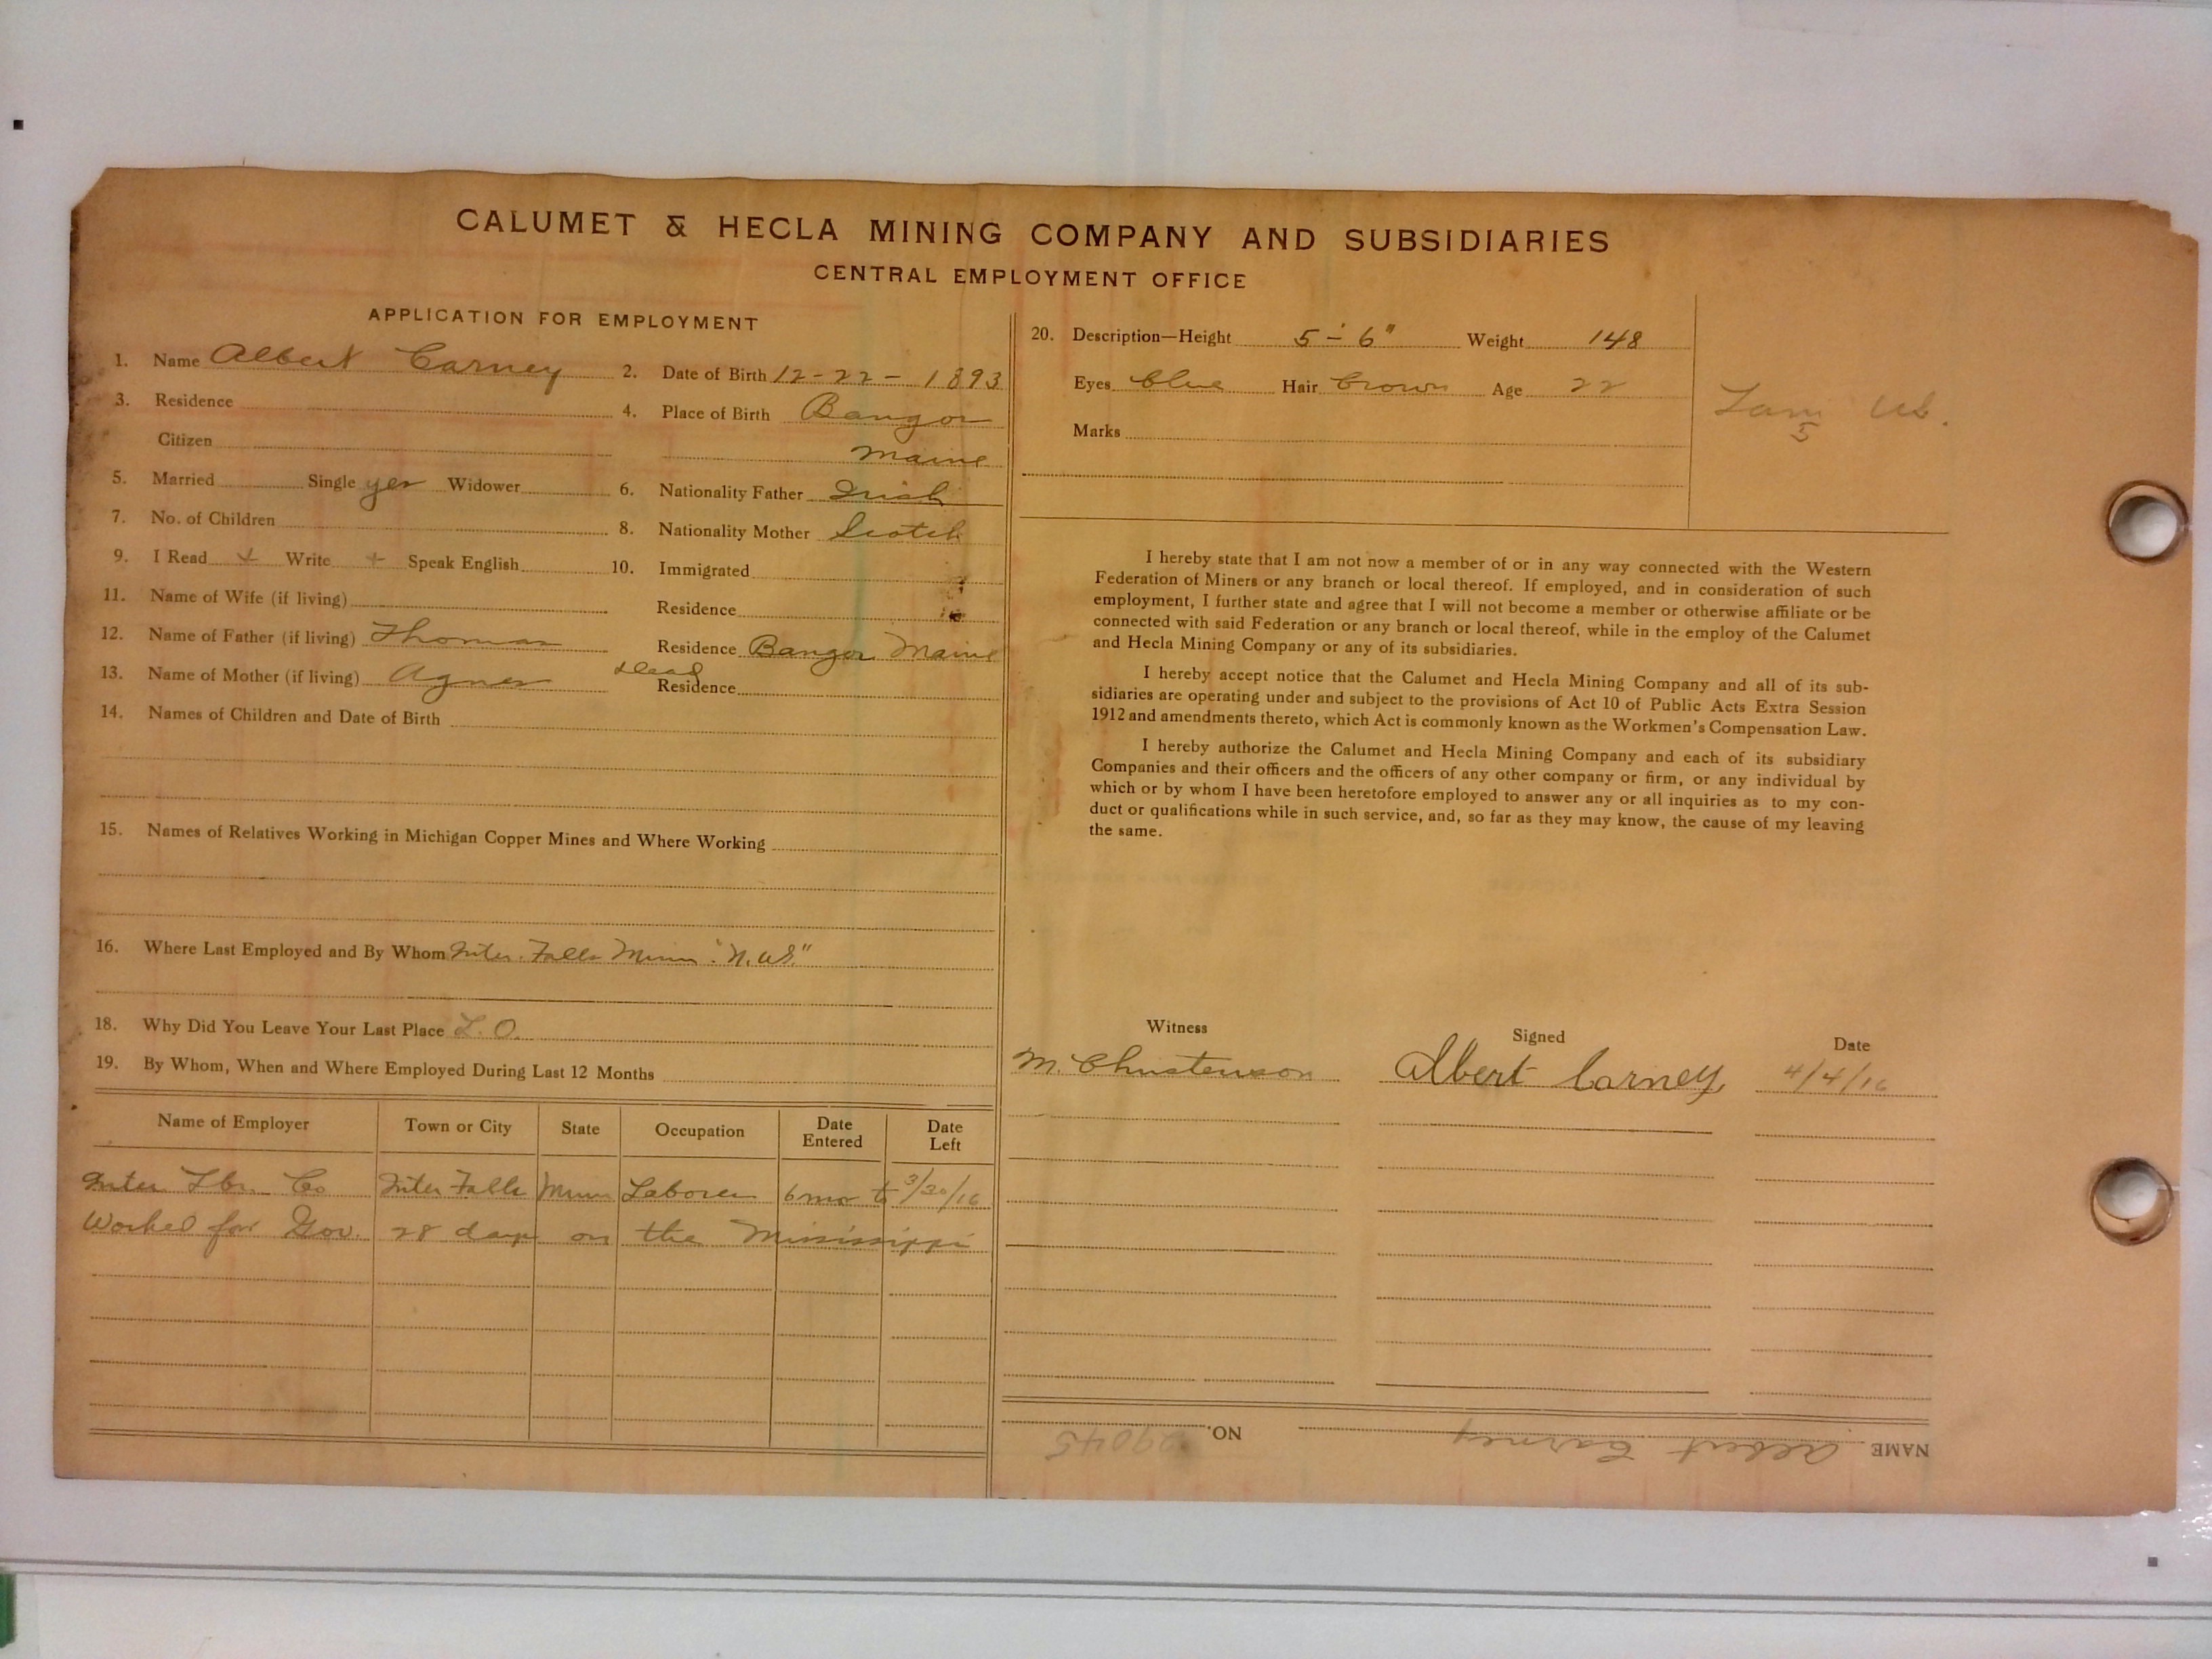 CALUMET & HECLA MINING COMPANY AND SUBSIDIARIES
CENTRAL EMPLOYMENT OFFICE
APPLICATION FOR EMPLOYMENT
1. Name Albert Carney 2. Date of Birth 12-22-1893
3. Residence 4. Place of Birth Bangor
Citizen Maine
5. Married Single yes Widower 6. Nationality Father Irish
7. No. of Children 8. Nationality Mother Scotch
9. I Read + Write + Speak English 10. Immigrated
11. Name of Wife (if living) Residence
12. Name of Father (if living) Thomas Residence Bangor Maine
13. Name of Mother (if living) Agnes dead Residence
14. Names of Children and Date of Birth
15. Names of Relatives Working in Michigan Copper Mines and Where Working
16. Where Last Employed and By Whom Inter. Falls Minn
18. Why Did You Leave Your Last Place L.O.
19. By Whom, When and Where Employed During Last 12 Months
Name of Employer Town or City State Occupation Date Entered Date Left
Inter Lbr. Co Inter Falls Minn Laborer 6 mos to 3/30/16
Worked for Gov. 28 days on the Mississippi
20. Description—Height 5'-6" Weight 148
Eyes blue Hair brown Age 22
Marks
5
I hereby state that I am not now a member of or in any way connected with the Western
Federation of Miners or any branch or local thereof. If employed, and in consideration of such
employment, I further state and agree that I will not become a member or otherwise affiliate or be
connected with said Federation or any branch or local thereof, while in the employ of the Calumet
and Hecla Mining Company or any of its subsidiaries.
I hereby accept notice that the Calumet and Hecla Mining Company and all of its sub-
sidiaries are operating under and subject to the provisions of Act 10 of Public Acts Extra Session
1912 and amendments thereto, which Act is commonly known as the Workmen's Compensation Law.
I hereby authorize the Calumet and Hecla Mining Company and each of its subsidiary
Companies and their officers and the officers of any other company or firm, or any individual by
which or by whom I have been heretofore employed to answer any or all inquiries as to my con-
duct or qualifications while in such service, and, so far as they may know, the cause of my leaving
the same.
Witness Signed Date
M. Christenson Albert Carney 4/4/16
NAME Albert Carney NO. 29045